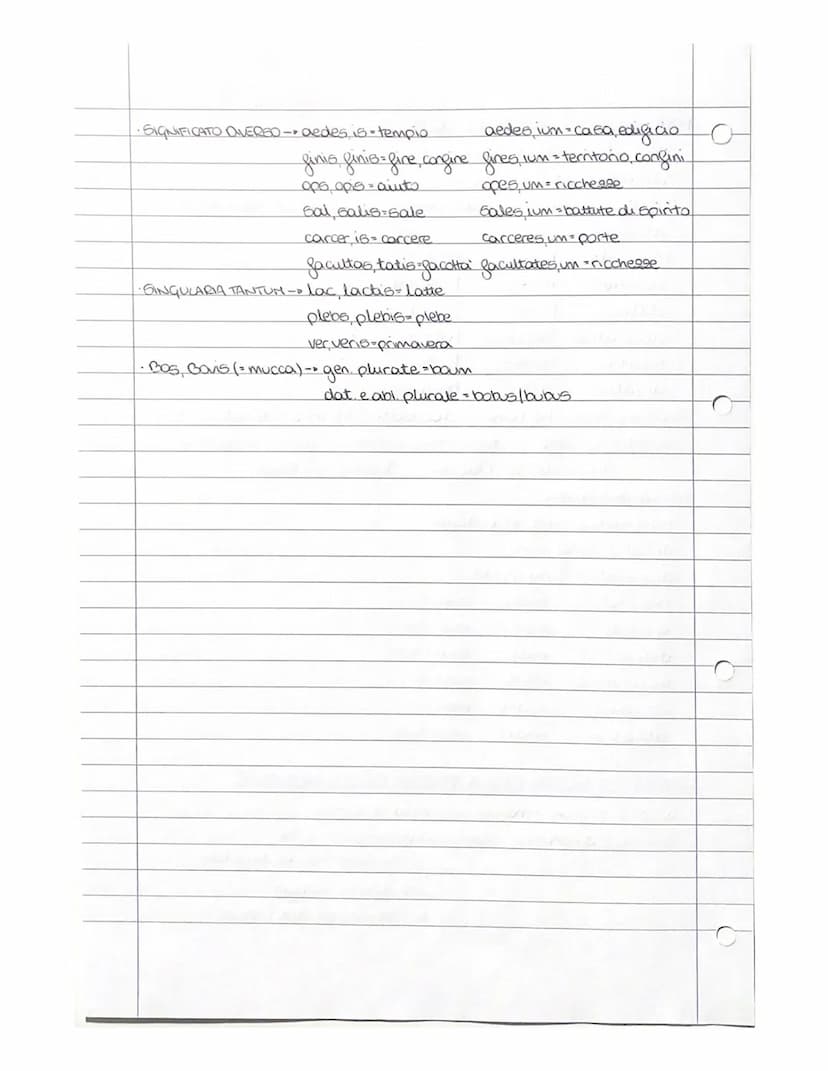 · SIGNIFICATO DIVERSO → aedes, is = tempio aedes, ium = casa, edificio
finis, finis = fine, confine fines, ium = territorio, confini
ops, opis = aiuto opes, um = ricchezze
sal, salis = sale sales, ium = battute di spirito
carcer, is = carcere carceres, um = porte
facultas, tatis = facoltà facultates, um = ricchezze
· SINGULARIA TANTUM → lac, lactis = latte
plebs, plebis = plebe
ver, veris = primavera
· Bos, Bovis (= mucca) → gen. plurale = boum
dat. e abl. plurale = bobus/bubus